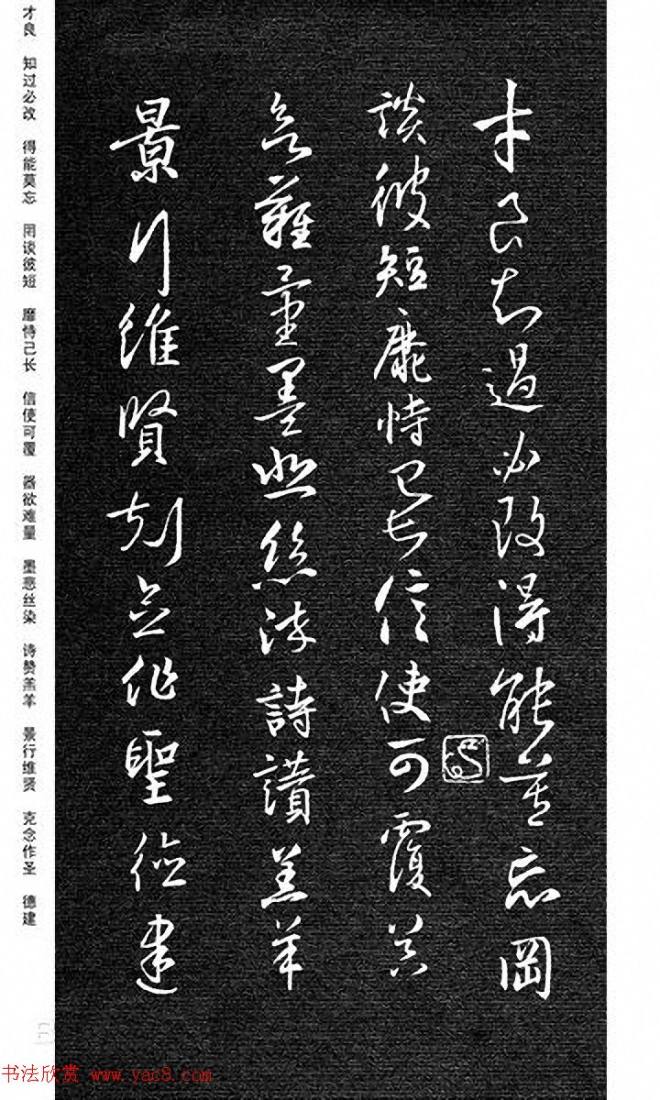 才良知過必改得能莫忘罔
談彼短靡恃己長信使可覆器
欲難量墨悲絲染詩讚羔羊
景行維賢剋念作聖德建
才良 知过必改 得能莫忘 罔谈彼短 靡恃己长 信使可覆 器欲难量 墨悲丝染 诗赞羔羊 景行维贤 克念作圣 德建
书法欣赏 www.yac8.com